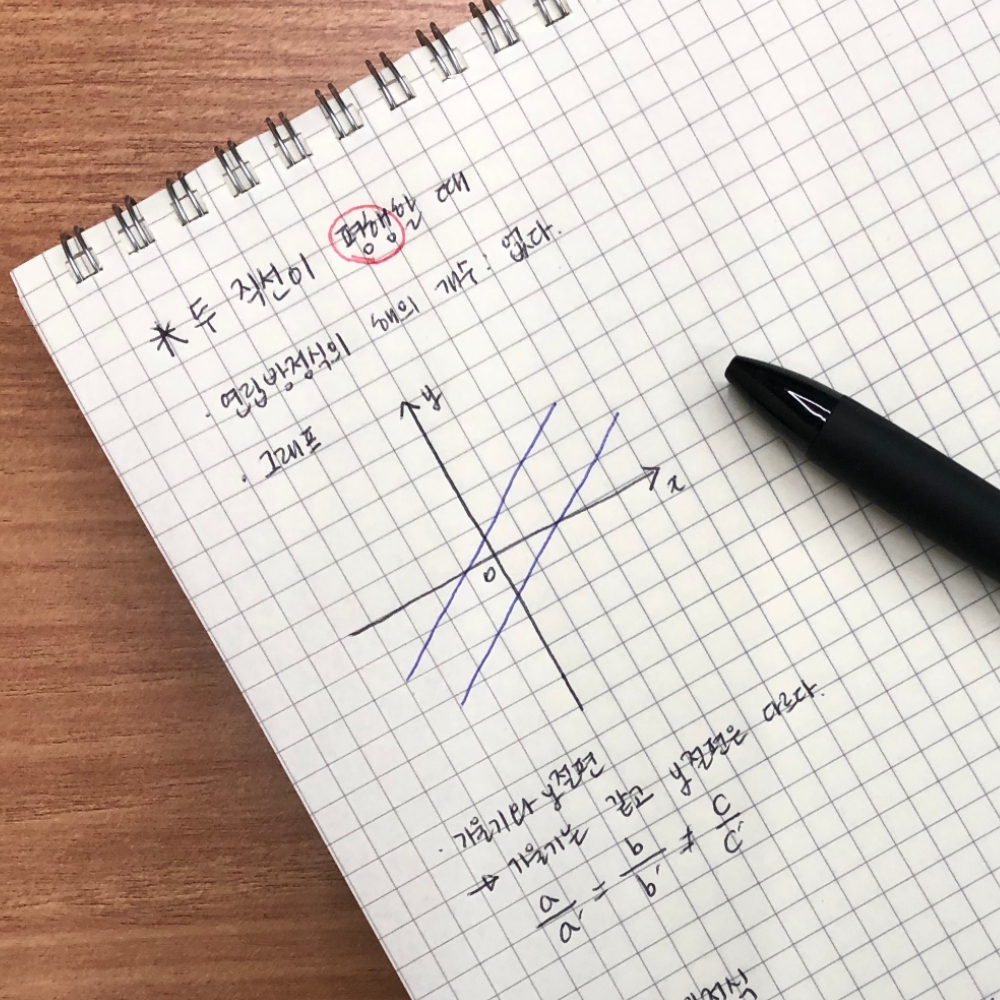 * 두 직선이 평행일 때
· 연립방정식의 해의 개수 : 없다.
· 그래프
y
x
0
· 기울기와 y절편
→ 기울기는 같고 y절편은 다르다.
a/a' = b/b' ≠ c/c'